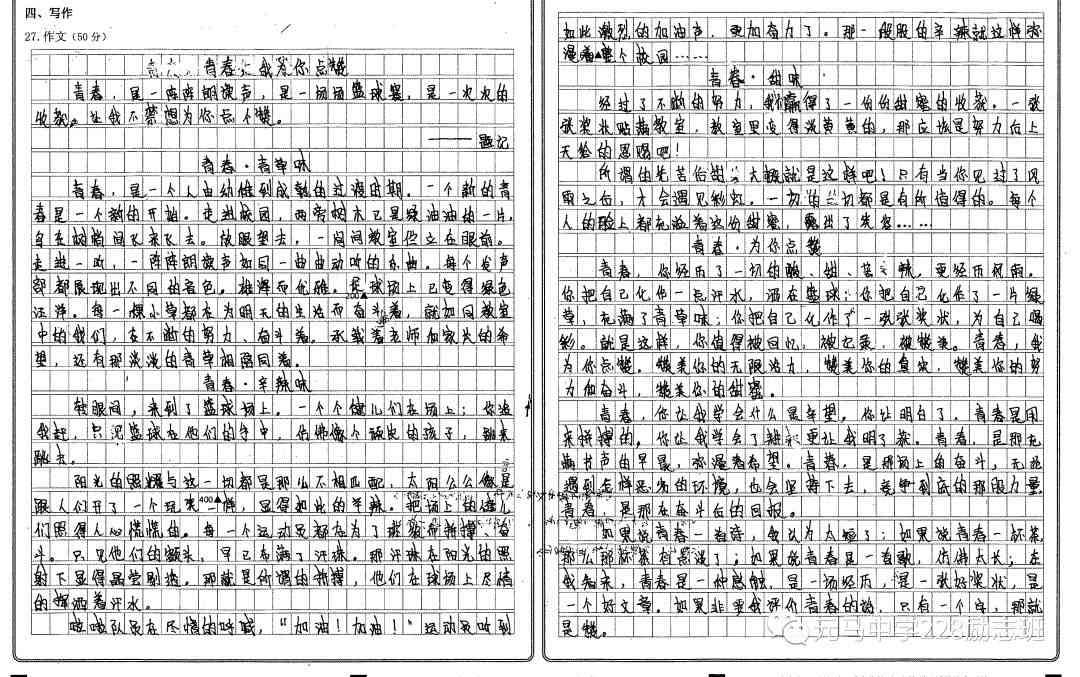 四、写作
27.作文(50分)
青春，我为你点赞
青春，是一阵阵朗读声，是一场场篮球赛，是一次次的
收获。让我不禁想为你点个赞。
——题记
青春·青草味
青春，是一个人由幼稚到成熟的过渡时期。一个新的青
春是一个新的开始。走进校园，两旁树木已是绿油油的一片，
鸟在树梢间飞来飞去。放眼望去，一间间教室伫立在眼前。
走进一听，一阵阵朗读声如同一曲曲动听的乐曲。每个发声
部都展现出不同的音色。雄浑而优雅。足球场上已变得绿色
汪洋。每一棵小草都在为明天的生活而奋斗着，就如同教室
200▲
中的我们，在不断的努力、奋斗着。承载着老师和家长的希
望，还有那淡淡的青草相随同着。
青春·辛辣味
转眼间，来到了篮球场上。一个个健儿们在场上；你追
我赶，只见篮球在他们的手中，仿佛像个顽皮的孩子，跳来
跳去。
阳光的照耀与这一切都是那么不相匹配，太阳公公像是
跟人们开了一个玩笑一样，显得如此的辛辣。把场上的健儿
400▲
们照得人心慌慌的。每一个运动员都在为了班级而拼搏、奋
斗。只见他们的额头，早已布满了汗珠。那汗珠在阳光的照
射下显得晶莹剔透。那就是所谓的拼搏，他们在球场上尽情
的挥洒着汗水。
啦啦队员在尽情的呼喊，“加油！加油！”运动员听到
如此激烈的加油声，更加奋力了。那一股股的辛辣就这样弥
漫着整个校园……
青春·甜味
经过了不断的努力，我们赢得了一份份甜蜜的收获。一张
张奖状贴满教室，教室里变得淡黄黄的，那应该是努力后上
天给的恩赐吧！
所谓的先苦后甜，大概就是这样吧！只有当你见过了风
雨之后，才会遇见彩虹。一切的一切都是有所值得的。每个
人的脸上都充溢着这份甜蜜，露出了笑容……
青春·为你点赞
青春，你经历了一切的酸、甜、苦、辣，更经历风雨。
你把自己化作一点汗水，洒在篮球；你把自己化作了一片绿
草，充满了青草味；你把自己化作了一张张奖状，为自己喝
彩。就是这样，你值得被回忆，被记录，被赞美。青春，我
为你点赞。赞美你的无限活力，赞美你的，赞美你的努
力和奋斗，赞美你的甜蜜。
青春，你让我学会什么是希望。你让明白了，青春是用
来拼搏的。你让我学会了，更让我明了获。青春，是那充
满书声的早晨，弥漫着希望。青春，是那场上的奋斗，无论
遇到怎样恶劣的环境，也会坚持下去，竞争到底的那股力量。
青春，是那在奋斗后的回报。
如果说青春一首诗，我认为太短了；如果说青春一杯茶，
那么那杯茶有点淡了；如果说青春是一首歌，仿佛太长；在
我看来，青春是一种感触，是一场经历，是一张好奖状，是
一个好文章。如果非要我评价青春的话，只有一个字，那就
是赞。
元马中学228励志班